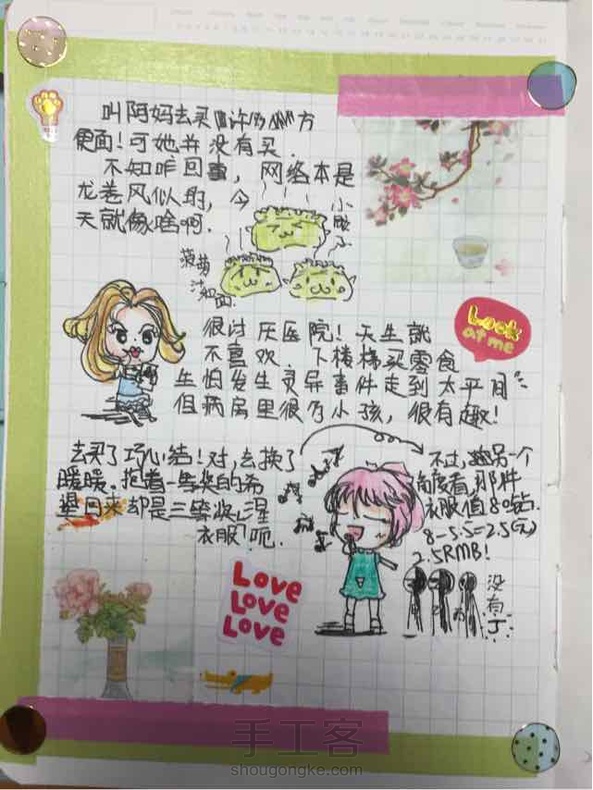 叫阿妈去买 许多 方
便面！可她并没有买．
不知咋回事，网络本是
龙卷风似的，今
天就像啥啊．
小
晓
菠萝
面：
Look
at me
很讨厌医院！天生就
不喜欢．下楼梯买零食
生怕发生灵异事件走到太平间
但病房里很多小孩，很有趣！
去买了巧心结！对，去换了
暖暖．抱着一等奖的希
望回来却是三等奖，涅
衣服 呃．
不过，换另一个
角度看，那件
衣服值80钻．
8-5.5=2.5(元)
2.5RMB!
没
有
了
Love
Love
Love
手工客
shougongke.com